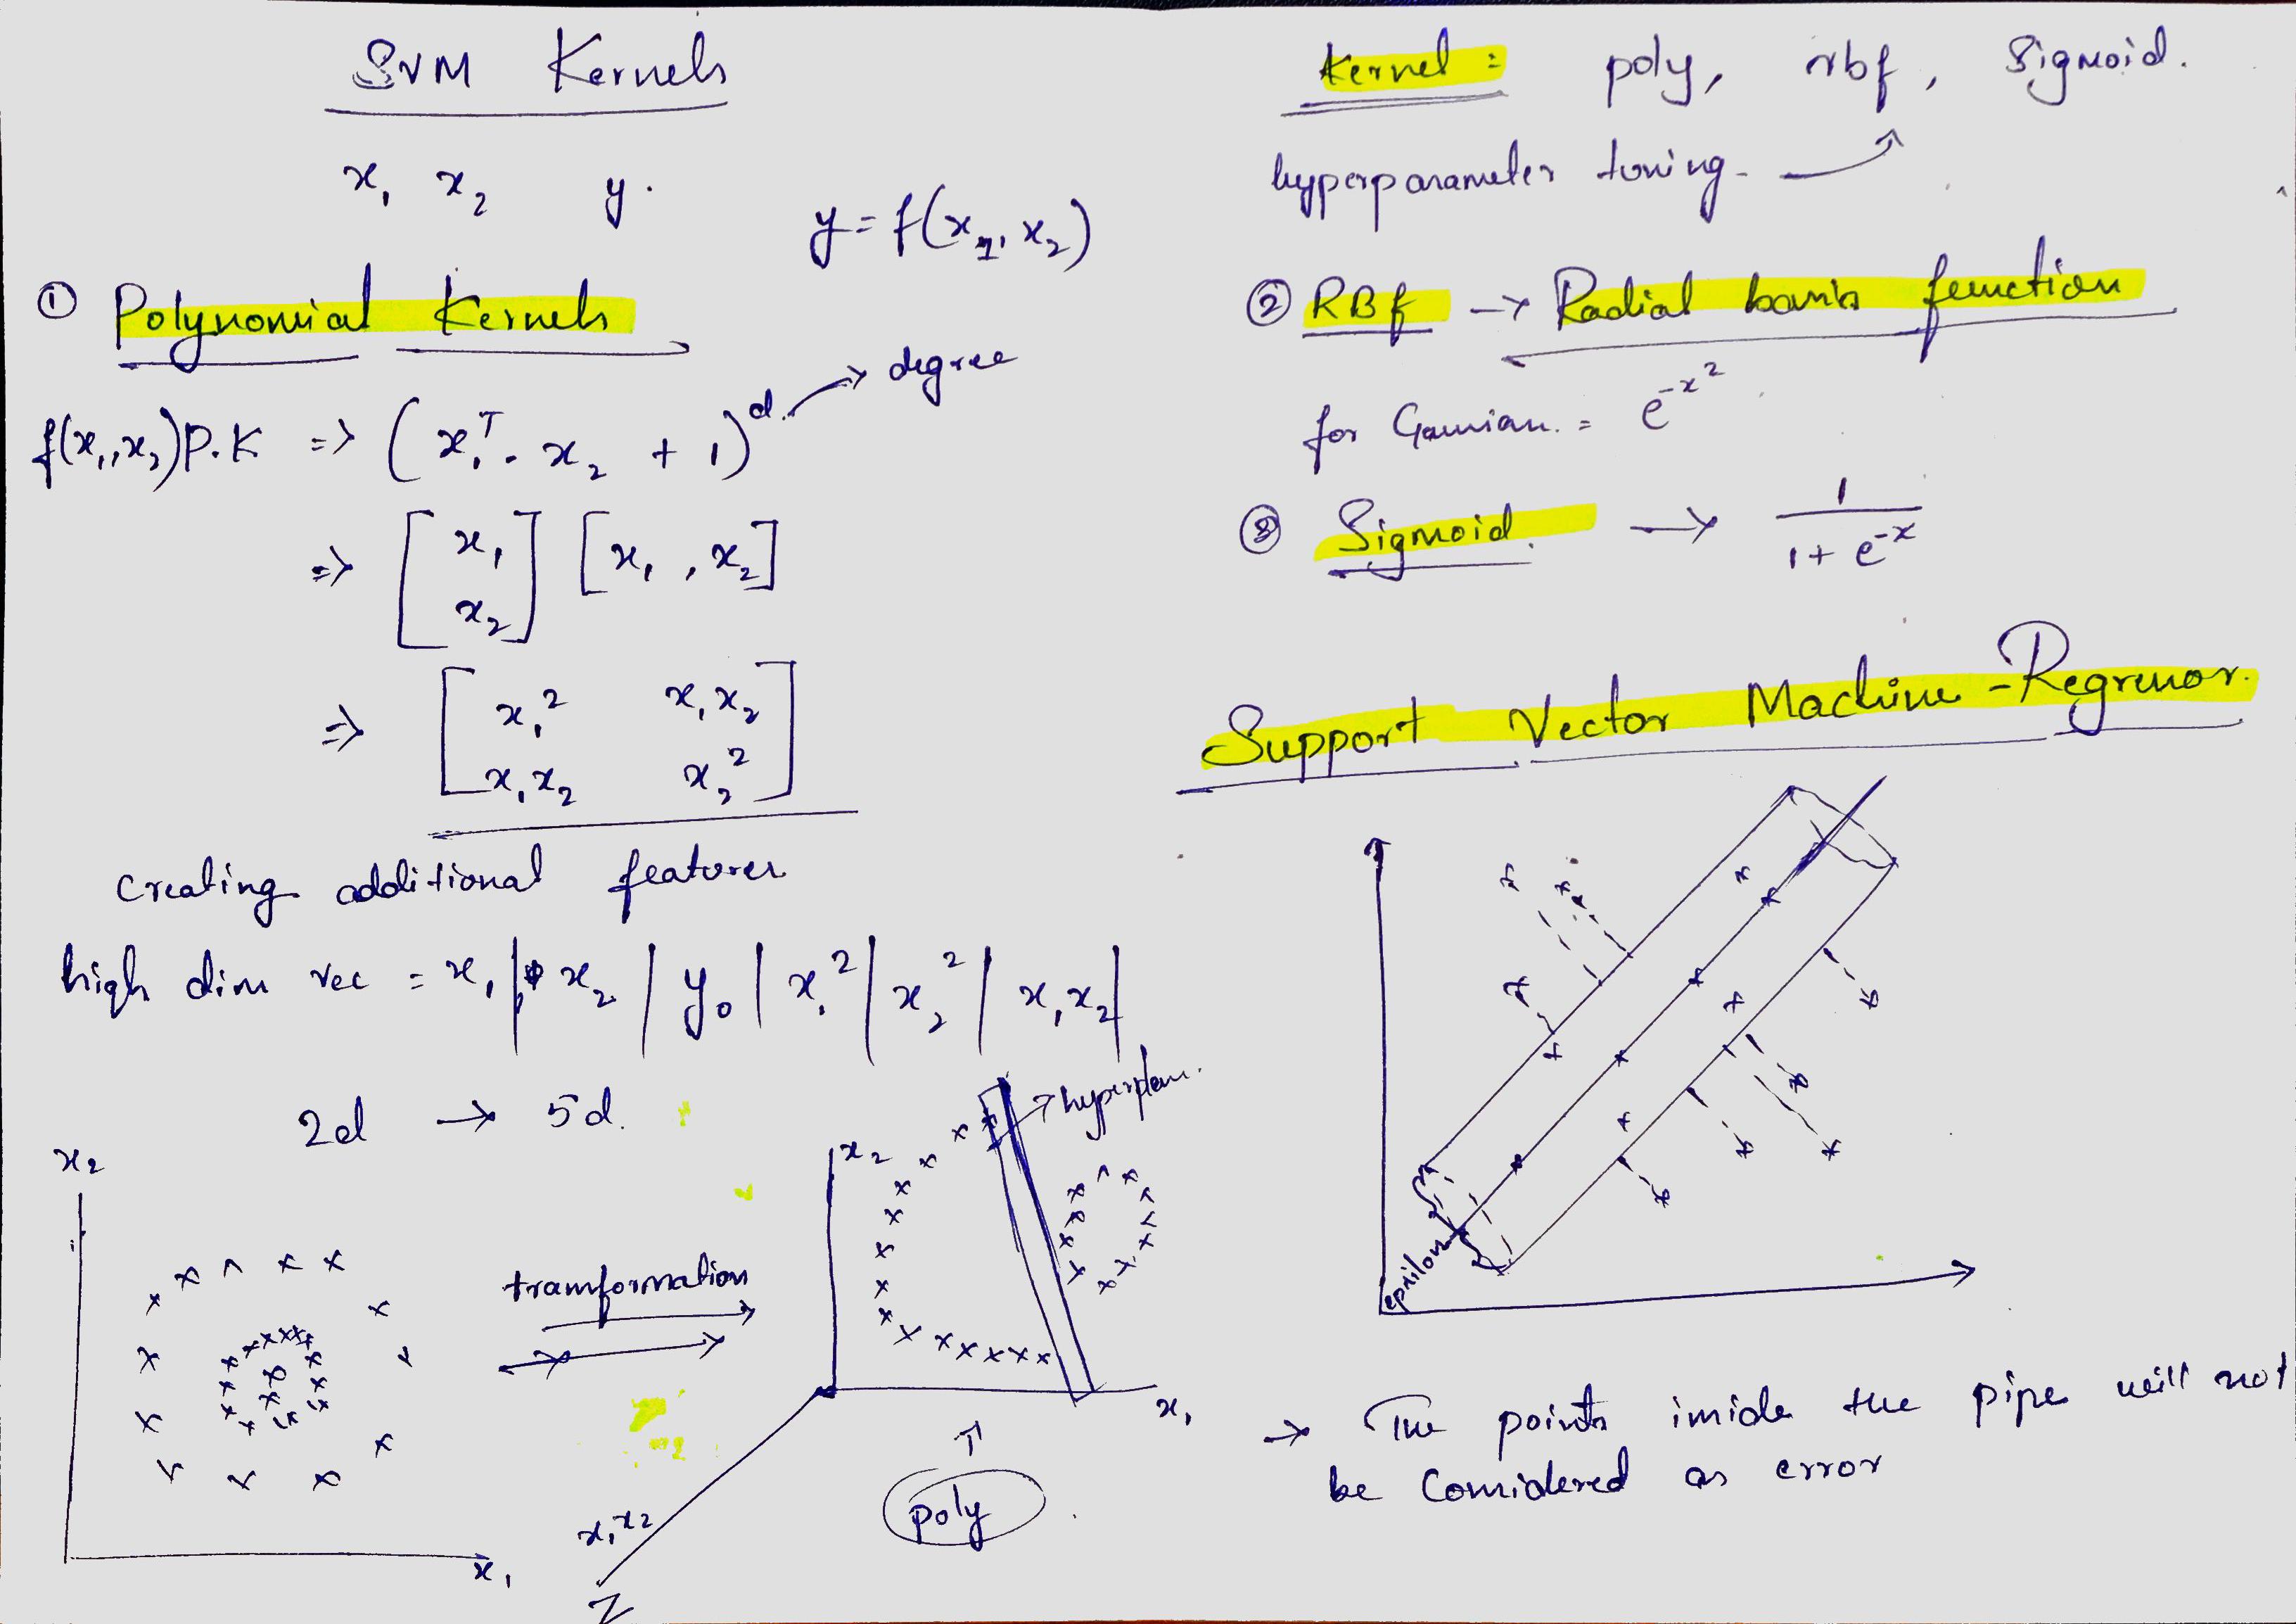 SVM Kernels
x₁ x₂ y.
y = f(x₁, x₂)
① Polynomial Kernels
f(x₁, x₂) P.K => (x₁ᵀ. x₂ + 1)ᵈ → degree
=> [x₁ x₂] [x₁, x₂]
=> [x₁² x₁x₂
x₁x₂ x₂²]
Creating additional features
high dim vec = x₁ | x₂ | y₀ | x₁² | x₂² | x₁x₂ |
2d → 5d.
x₂
x₁
transformation
x₂
hyperplane.
x₁
x₁x₂
Z
poly
Kernel = poly, rbf, Sigmoid.
hyperparameter tuning
② RBf → Radial basis function
for Gaussian. = e^-x²
③ Sigmoid. → 1 / 1 + e^-x
Support Vector Machine - Regressor.
epsilon
→ The points inside the pipe will not
be Considered as error